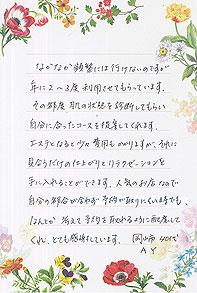 なかなか頻繁には行けないのですが
年に2〜3度利用させてもらっています。
その都度、肌の状態を診断してもらい
自分に合ったコースを提案してくれます。
エステとなると少々費用もかかりますが、それに
見合うだけの仕上がりとリラクゼーションを
手に入れることができます。人気のお店なので
自分の都合が合わず予約が取りにくい時でも、
なんとか 予約を取れるように配慮して
くれ、とても感謝しています。 岡山市 40代
A Y